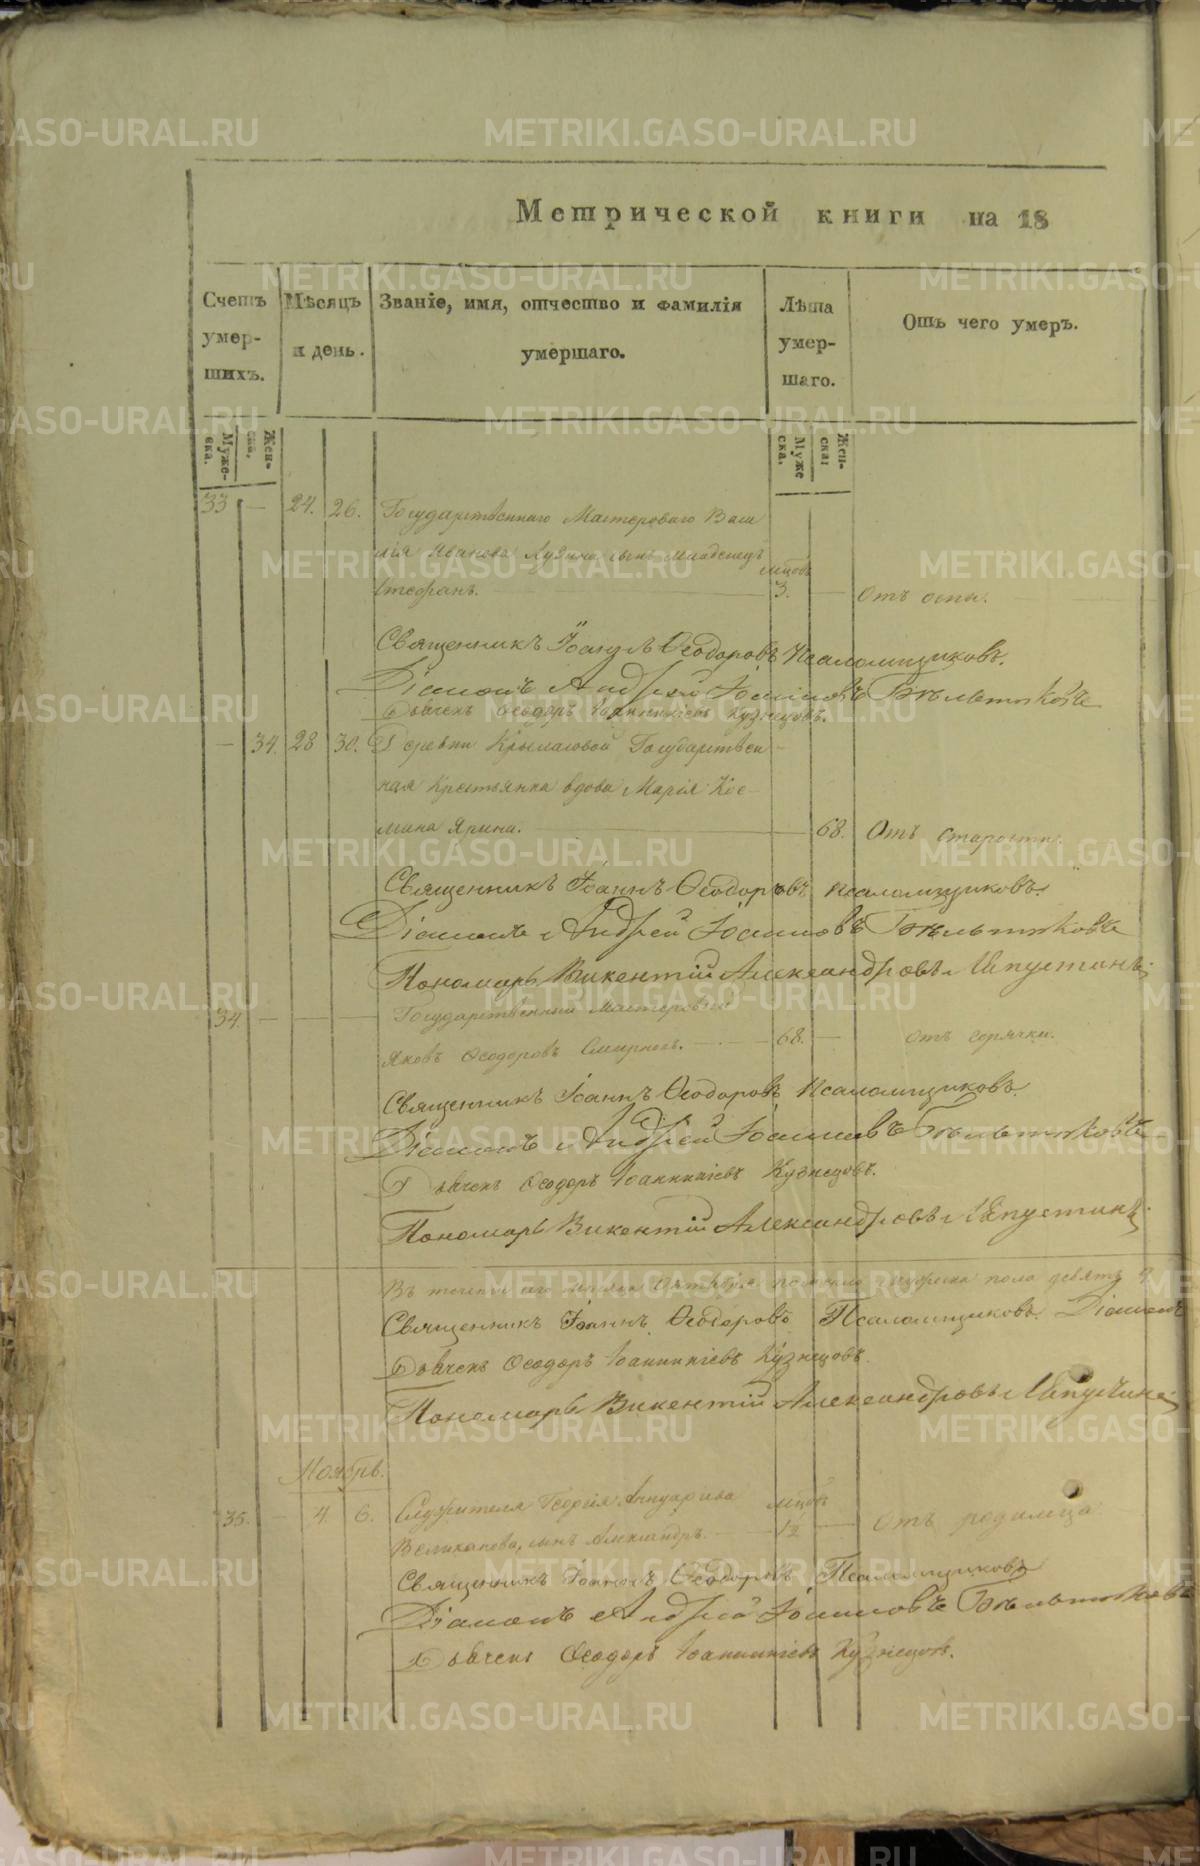 Метрической книги на 18
Счетъ умер-шихъ.
Мѣсяцъ и день.
Званіе, имя, отчество и фамилія умершаго.
Лѣта умер-шаго.
Отъ чего умеръ.
Муже-ска. Жен-ска. Муже ска. Жен-ска:
33 — 24. 26. Государственнаго Мастероваго Васи
лія Иванова сынъ младенецъ мѣсцовъ
Стефанъ. — 3. — Отъ оспы.
Священникъ Іоаннъ Ѳеодоровъ Псаломщиковъ.
Діаконъ Андрей Іоанновъ Бѣльтюковъ
Дьячекъ Ѳеодоръ Іоанникіевъ Кузнецовъ.
— 34. 28 30. Деревни Государствен-
ная Крестьянка вдова Марія Кос-
мина Ярина. — 68. Отъ старости.
Священникъ Іоаннъ Ѳеодоровъ Псаломщиковъ.
Діаконъ Андрей Іоанновъ Бѣльтюковъ
Пономарь Викентій Александровъ
34. — — — Государственный Мастеровый
Яковъ Ѳеодоровъ Смирновъ. — 68. — Отъ горячки.
Священникъ Іоаннъ Ѳеодоровъ Псаломщиковъ
Діаконъ Андрей Іоанновъ Бѣльтюковъ
Дьячекъ Ѳеодоръ Іоанникіевъ Кузнецовъ.
Пономарь Викентій Александровъ
Въ теченіи сего мѣсяца Октября померло мужеска пола девять 9
Священникъ Іоаннъ Ѳеодоровъ Псаломщиковъ. Діаконъ
Дьячекъ Ѳеодоръ Іоанникіевъ Кузнецовъ.
Пономарь Викентій Александровъ
Ноябрь.
35. — 4 6. Служителя Георгія мѣсцовъ
Великанова, сынъ Александръ. — 12 — Отъ родимца
Священникъ Іоаннъ Ѳеодоровъ Псаломщиковъ
Діаконъ Андрей Іоанновъ Бѣльтюковъ
Дьячекъ Ѳеодоръ Іоанникіевъ Кузнецовъ.
METRIKI.GASO-URAL.RU